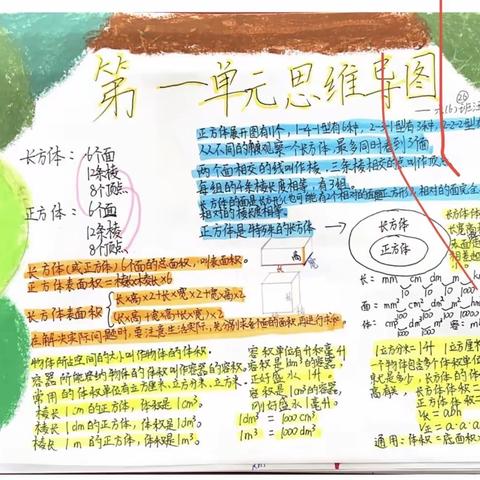 第一单元思维导图
长方体：6个面
12条棱
8个顶点
正方体：6个面
12条棱
8个顶点
正方体展开图有11个，1-4-1型有6种，2-3-1型有3种，2-2-2型有
从不同的角度观察一个长方体，最多同时看到3个面。
两个面相交的线叫作棱，三条棱相交的点叫作顶点
每组的4条棱长度相等，有3组。
相对的棱长度相等。
正方体是特殊的长方体
长方体
正方体
长方体(或正方体)6个面的总面积，叫表面积。
正方体表面积=棱长×棱长×6
长方体表面积
长×高×2+长×宽×2+宽×高×2
(长×高+宽×高+长×宽)×2
在解决实际问题时，要注意生活实际，先分别求各个面的面积，再进行求和
高
宽
长
长：mm cm dm m km
10 10 10 1000
面：mm² cm² dm² m²
100 100 100
体：cm³ dm³ m³
物体所占空间的大小叫作物体的体积。
容器所能容纳物体的体积叫作容器的容积。
常用的体积单位有立方厘米、立方分米、立方米。
棱长1cm的正方体，体积是1cm³。
棱长1dm的正方体，体积是1dm³。
棱长1m的正方体，体积是1m³。
容积单位有升和毫升
容积是1dm³的容器，
正好盛水1升。
容积是1cm³的容器，
刚好盛水1毫升。
1dm³=1000cm³
1m³=1000dm³
1立方分米=1升
一个物体包含多少个体积单位
长方体体积=
正方体体积=
V长=abh
V正=a·a·a
通用：体积=底面积×